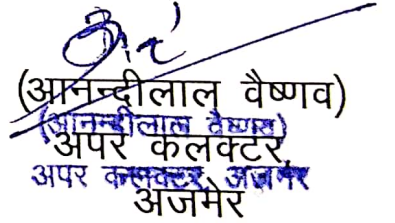 (आनन्दीलाल वैष्णव)
(आनन्दीलाल वैष्णव)
अपर कलक्टर,
अपर कलक्टर, अजमेर
अजमेर